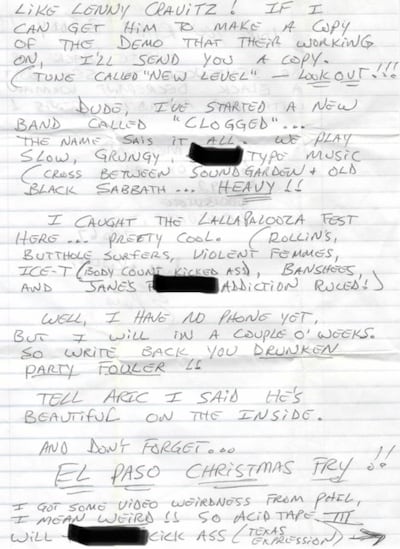 LIKE LENNY CRAVITZ! IF I
CAN GET HIM TO MAKE A COPY
OF THE DEMO THAT THEIR WORKING
ON, I'LL SEND YOU A COPY.
(TUNE CALLED "NEW LEVEL" — LOOK OUT!!!
DUDE, I'VE STARTED A NEW
BAND CALLED "CLOGGED"...
THE NAME SAIS IT ALL. WE PLAY
SLOW, GRUNGY, TYPE MUSIC
(CROSS BETWEEN SOUNDGARDEN + OLD
BLACK SABBATH... HEAVY!!
I CAUGHT THE LALLAPALOOZA FEST
HERE... PRETTY COOL. (ROLLIN'S,
BUTTHOLE SURFERS, VIOLENT FEMMES,
ICE-T (BODY COUNT KICKED ASS), BANSHEES,
AND JANE'S F ADDICTION RULED!)
WELL, I HAVE NO PHONE YET,
BUT I WILL IN A COUPLE O' WEEKS.
SO WRITE BACK YOU DRUNKEN
PARTY FOULER!!
TELL ARIC I SAID HE'S
BEAUTIFUL ON THE INSIDE.
AND DON'T FORGET...
EL PASO CHRISTMAS FRY!!
I GOT SOME VIDEO WEIRDNESS FROM PHIL,
I MEAN WEIRD!! SO ACID TAPE III
WILL KICK ASS (TEXAS EXPRESSION)